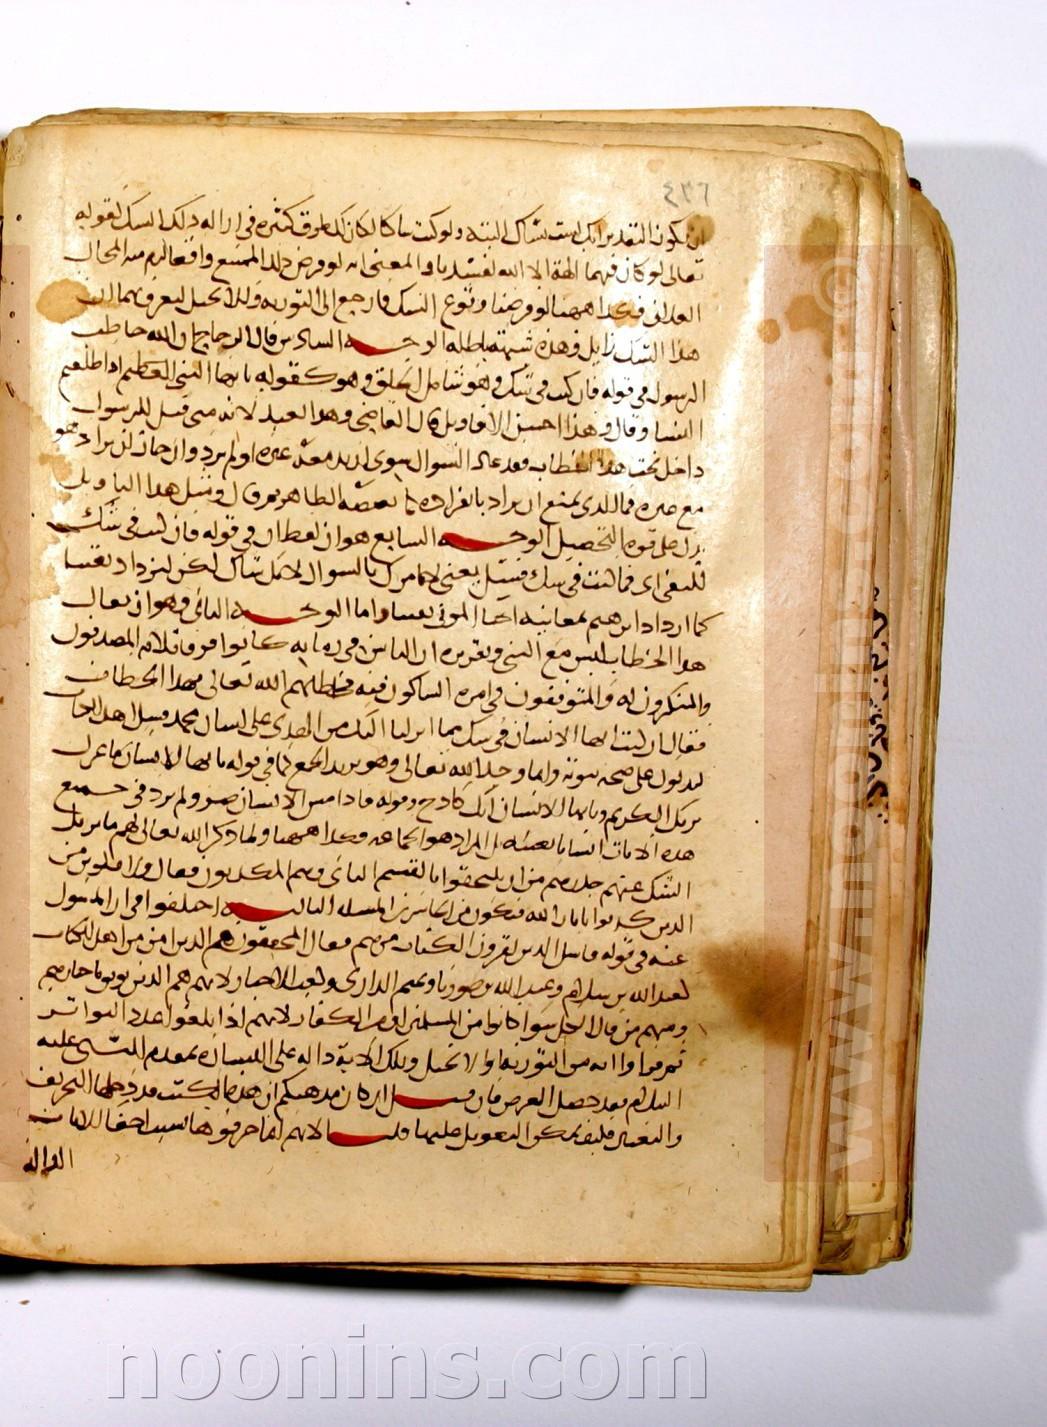 ٤٣٦
ان يكون التقدير انك لست بشاك البتة ولو كنت شاكا لكان لك طرق كثيرة في ازالة ذلك الشك كقوله
تعالى لو كان فيهما الهة الا الله لفسدتا والمعنى انه لو فرض ذلك الممتنع واقعا لزم منه المحال
الفلاني فكذا ههنا لو فرضنا وقوع الشك فارجع الى التورية والانجيل لتعرف بهما ان
هذا الشك زايل وهذه شبهة باطلة الوجه السادس قال الزجاج ان الله خاطب
الرسول في قوله فان كنت في شك وهو شامل الخلق وهو كقوله يايها النبي اذا طلقتم
النسا وقال وهذا احسن الاقاويل قال القاضي وهذا بعيد لانه متى قيل الرسول
داخل تحت هذا الخطاب فقد عاد السؤال سوى اريد معه غيره او لم يرد وان جاز ان يراد هو
مع غيره فما الذي يمنع ان يراد بانفراده كما يقتضيه الظاهر ثم قال ومثل هذا التاويل
يدل على قلة التحصيل الوجه السابع هو ان لفظ ان في قوله فان كنت في شك
للنفي اي فما كنت في شك قبل يعني لا نامرك بالسوال لانك شاك لكن لتزداد يقينا
كما ازداد ابرهيم بمعاينة احيا الموتى يقينا واما الوجه الثاني وهو ان يقال
هذا الخطاب ليس مع النبي وتقريره ان الناس في زمانه كانوا فرقا ثلاثة المصدقون
والمنكرون له والمتوقفون في امره الشاكون فيه فخاطبهم الله تعالى بهذا الخطاب
فقال ان كنت ايها الانسان في شك مما انزلنا اليك من الهدى على لسان محمد فسل اهل الكتاب
ليدلوك على صحة نبوته وانما وحد الله تعالى وهو يريد الجمع كما في قوله يايها الانسان ما غرك
بربك الكريم ويايها الانسان انك كادح وقوله فاذا مس الانسان ضر ولم يرد في جميع
هذه الايات انسانا بعينه بل المراد هو الجماعة فكذا ههنا ولما ذكر الله تعالى لهم ما يزيل
الشك عنهم حذرهم من ان يلحقوا بالقسم الثاني وهم المكذبون فقال ولا تكونن من
الذين كذبوا بايات الله فتكون من الخاسرين المسلة الثالثة اختلفوا في ان المسول
عنه في قوله فاسل الذين يقرون الكتاب من هم فقال المحققون هم الذين امنوا من اهل الكتاب
كعبد الله بن سلام وعبد الله بن صوريا وتميم الداري وكعب الاحبار لانهم هم الذين يوثق باخبارهم
ومنهم من قال الكل سوا كانوا من المسلمين او من الكفار لانهم اذا بلغوا عدد التواتر
ثم قروا اية من التورية والانجيل وتلك الاية دالة على البشارة بمقدم النبي عليه
السلام فقد حصل الغرض فان قيل اذا كان مذهبكم ان هذه الكتب قد دخلها التحريف
والتغيير فكيف يمكن التعويل عليها قلنا لانهم انما حرفوها بسبب اخفا الايات
الدالة
www.noonins.com ©
noonins.com